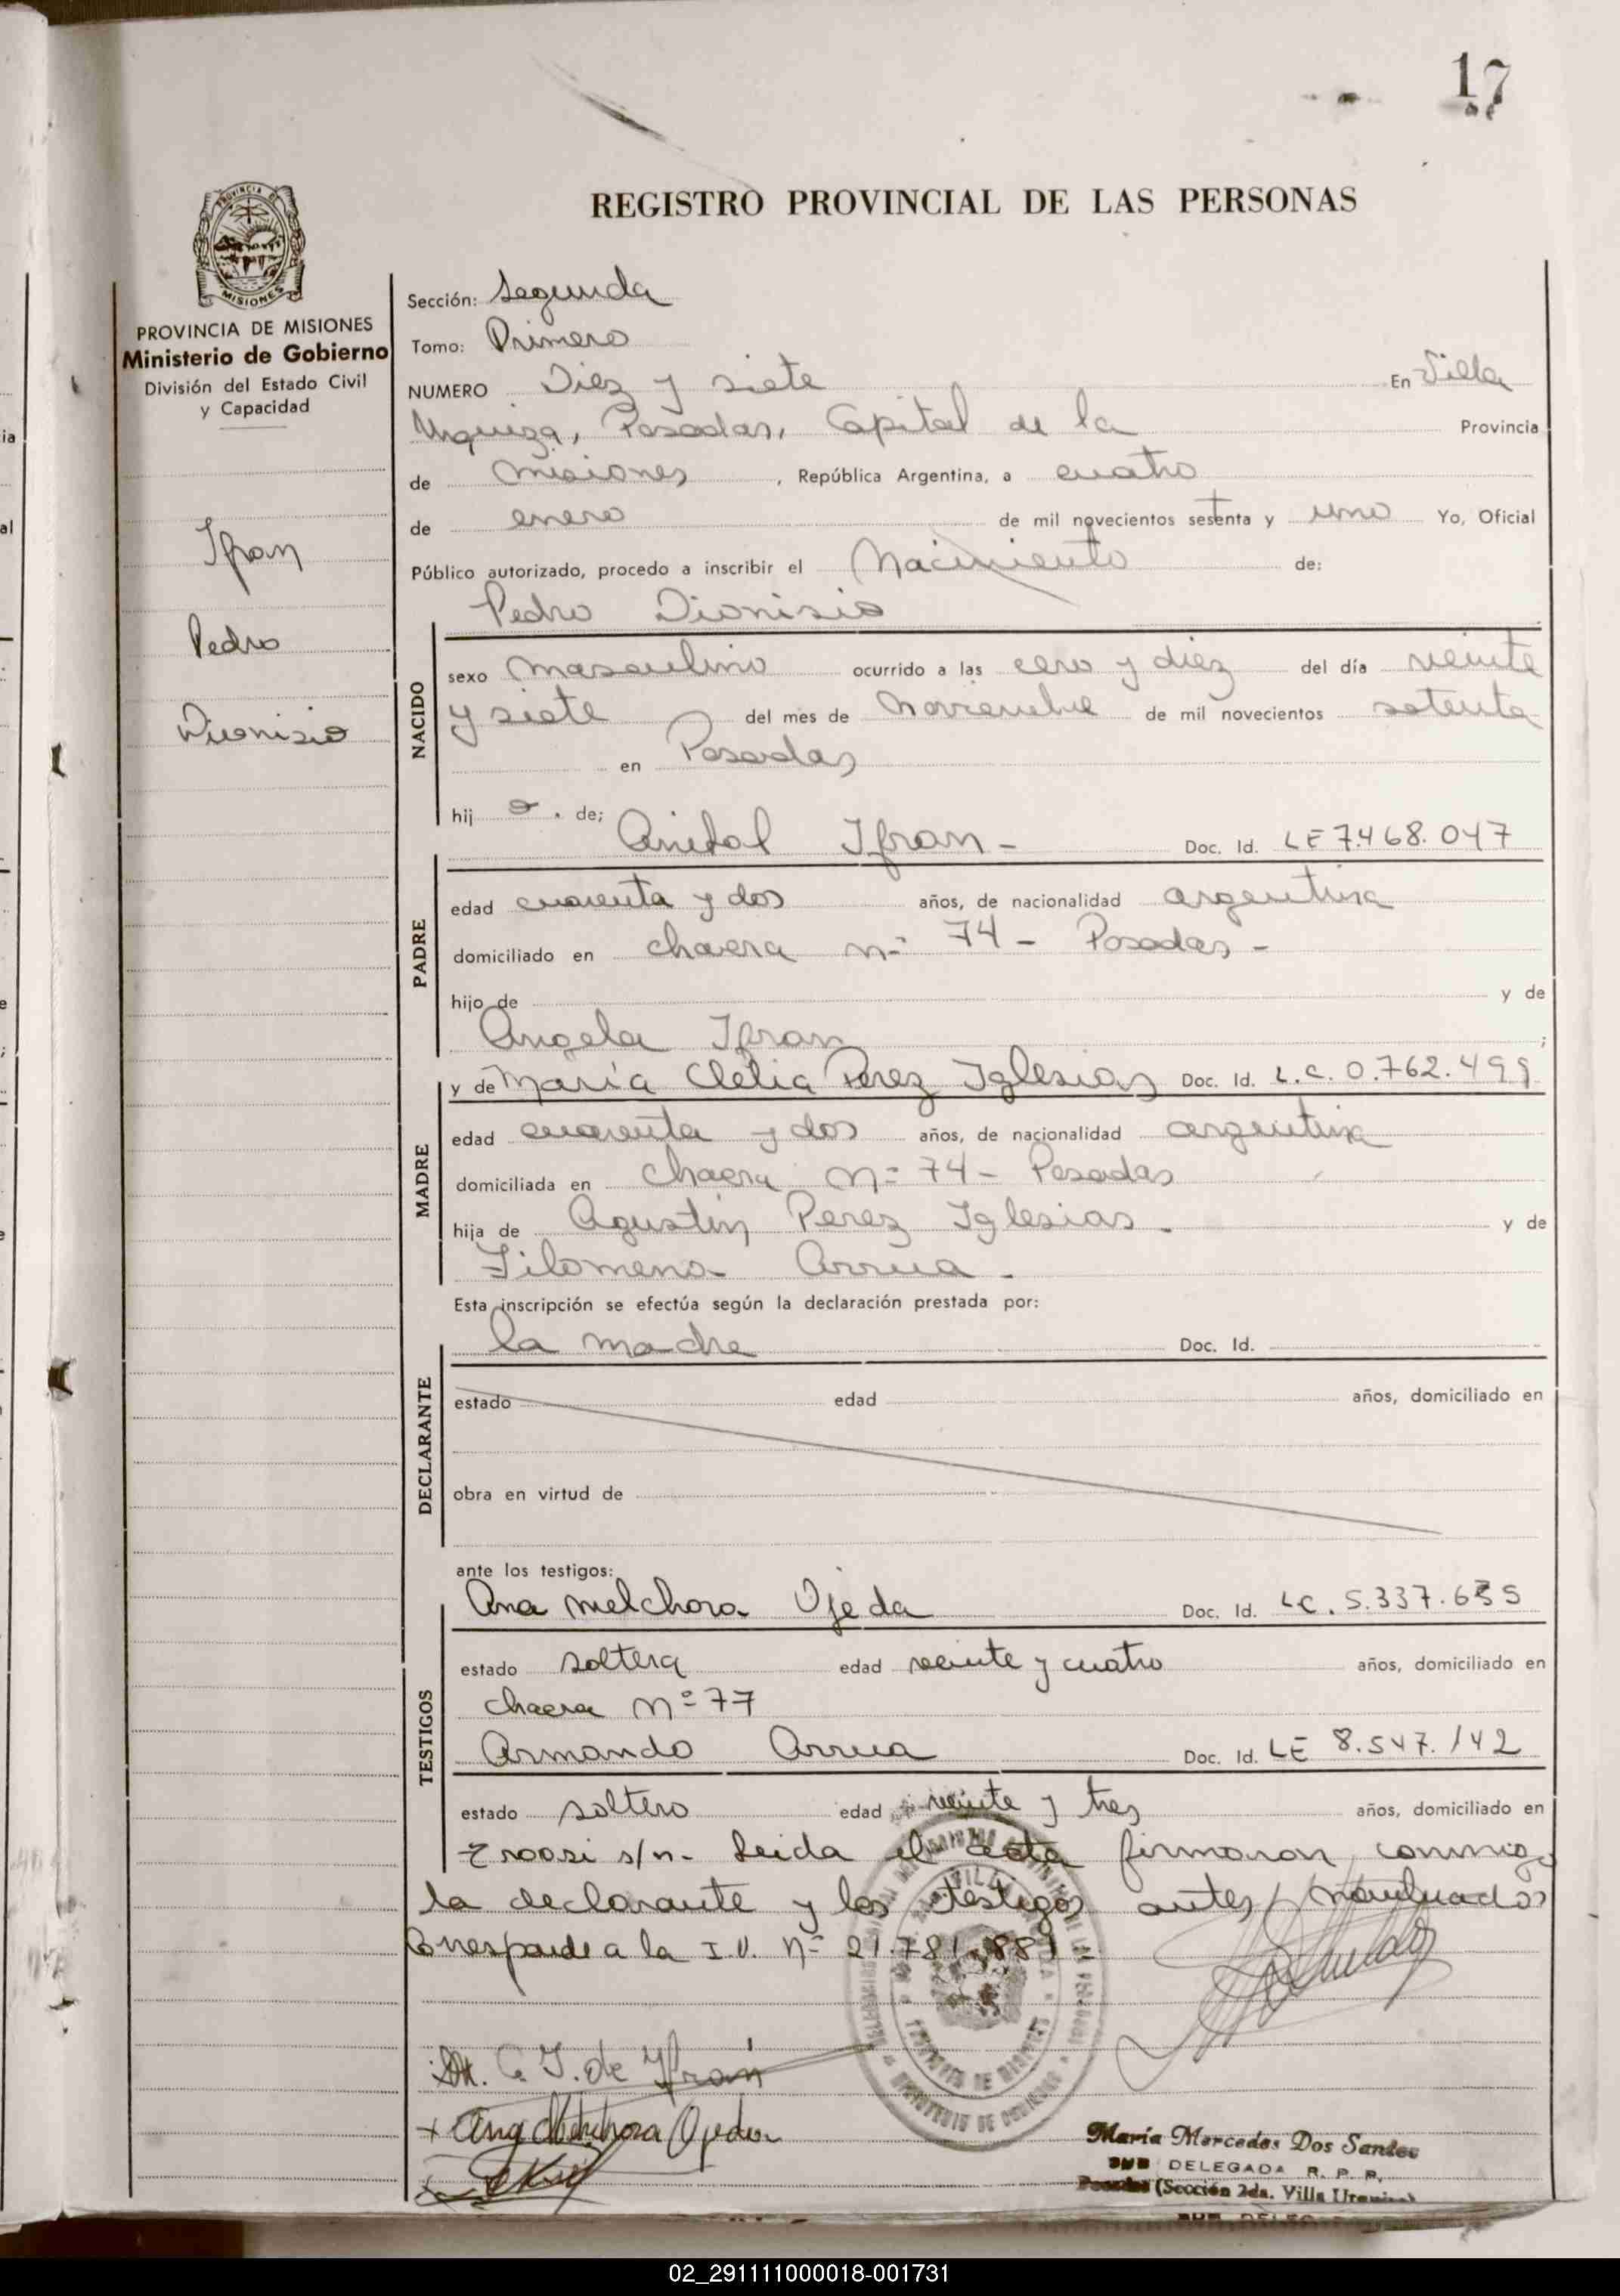 17
REGISTRO PROVINCIAL DE LAS PERSONAS
PROVINCIA DE
MISIONES
PROVINCIA DE MISIONES
Ministerio de Gobierno
División del Estado Civil
y Capacidad
Ifran
Pedro
Dionisio
Sección: Segunda
Tomo: Primero
NUMERO Diez y siete En Villa
Urquiza, Posadas, Capital de la Provincia
de Misiones, República Argentina, a cuatro
de enero de mil novecientos setenta y uno Yo, Oficial
Público autorizado, procedo a inscribir el Nacimiento de:
Pedro Dionisio
NACIDO
sexo masculino ocurrido a las cero y diez del día veinte
y siete del mes de Noviembre de mil novecientos setenta
en Posadas
hijo. de;
Anibal Ifran - Doc. Id. LE 7.468.047
PADRE
edad cuarenta y dos años, de nacionalidad argentina
domiciliado en chacra nº 74 - Posadas -
hijo de y de
Angela Ifran ;
y de María Clelia Perez Iglesias Doc. Id. L.C. 0.762.499
MADRE
edad cuarenta y dos años, de nacionalidad argentina
domiciliada en chacra nº 74 - Posadas
hija de Agustin Perez Iglesias - y de
Filomena Arrua -
Esta inscripción se efectúa según la declaración prestada por:
la madre Doc. Id.
DECLARANTE
estado edad años, domiciliado en
obra en virtud de
ante los testigos:
Ana Melchora Ojeda Doc. Id. LC. 5.337.635
TESTIGOS
estado soltera edad veinte y cuatro años, domiciliado en
chacra Nº 77
Armando Arrua Doc. Id. LE 8.547.142
estado soltero edad veinte y tres años, domiciliado en
s/n. Leida el acta firmaron conmigo
la declarante y los testigos antes nombrados
Corresponde a la I.U. Nº 21.781.881 -
M. C. I. de Ifrán
+ Ana Melchora Ojeda
María Mercedes Dos Santos
SUB DELEGADA R. P. P.
Posadas (Sección 2da. Villa Urquiza)
02_291111000018-001731